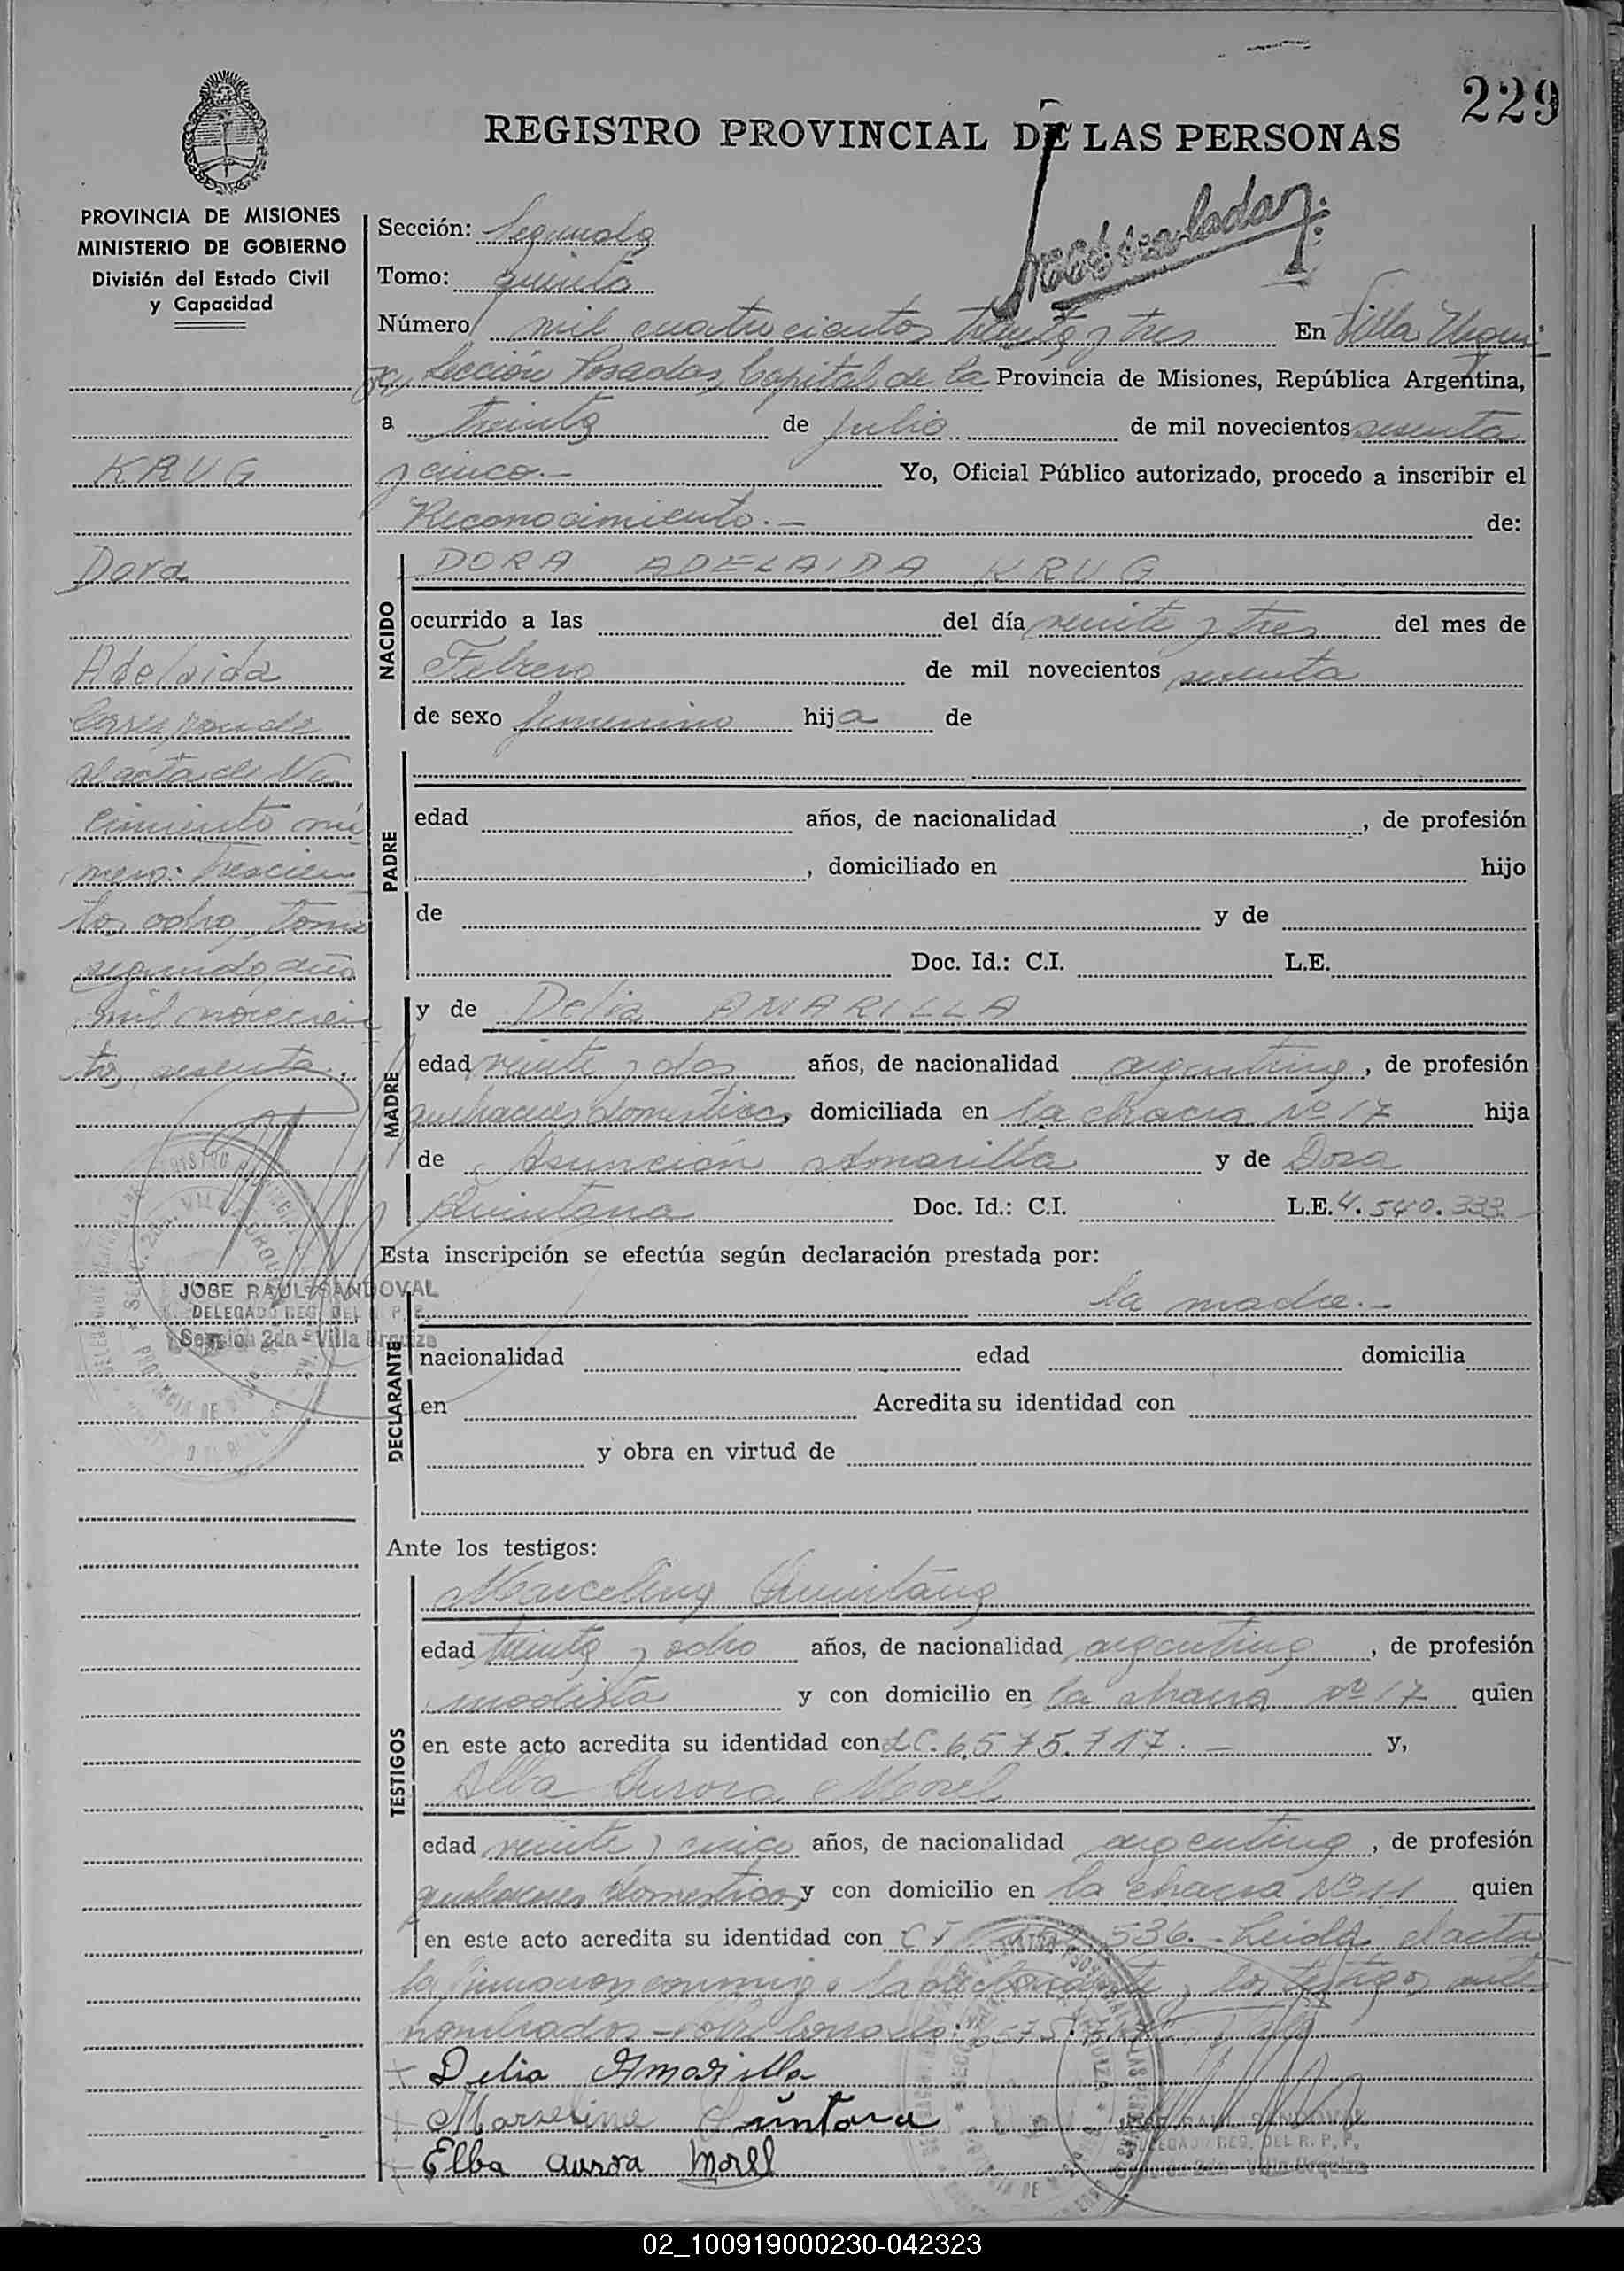 229
REGISTRO PROVINCIAL DE LAS PERSONAS
PROVINCIA DE MISIONES
MINISTERIO DE GOBIERNO
División del Estado Civil
y Capacidad
KRUG
Dora
Adelaida
Corresponde
al acta de Na
cimiento nú
mero: trescien
tos ocho, tomo
segundo, año
mil novecien
tos sesenta.
JOSE RAUL SANDOVAL
DELEGADO REG. DEL R. P. P.
Sección 2da - Villa Urquiza
Sección: Segunda
Tomo: quinto
Número mil cuatrocientos treinta y tres En Villa Urqui
za, Sección Posadas, Capital de la Provincia de Misiones, República Argentina,
a treinta de Julio de mil novecientos sesenta
y cinco.- Yo, Oficial Público autorizado, procedo a inscribir el
Reconocimiento.- de:
NACIDO
DORA ADELAIDA KRUG
ocurrido a las del día veinte y tres del mes de
Febrero de mil novecientos sesenta
de sexo femenino hija de
PADRE
edad años, de nacionalidad , de profesión
, domiciliado en hijo
de y de
Doc. Id.: C.I. L.E.
MADRE
y de Delia AMARILLA
edad veinte y dos años, de nacionalidad argentina, de profesión
quehaceres domésticos, domiciliada en la chacra Nº 17 hija
de Asunción Amarilla y de Dora
Quintana Doc. Id.: C.I. L.E. 4.540.333
Esta inscripción se efectúa según declaración prestada por:
DECLARANTE
la madre.-
nacionalidad edad domicilia
en Acredita su identidad con
y obra en virtud de
Ante los testigos:
TESTIGOS
Marcelina Quintana
edad treinta y ocho años, de nacionalidad argentina, de profesión
modista y con domicilio en la chacra Nº 17 quien
en este acto acredita su identidad con LC. 6.575.717.- y,
Elba Aurora Morel
edad veinte y cinco años, de nacionalidad argentina, de profesión
quehaceres domésticos y con domicilio en la chacra Nº 11 quien
en este acto acredita su identidad con CI 536.- Leída el acta
la firmaron conmigo la declarante y los testigos ante
nombrados -
Delia Amarilla
Marselina Quintana
Elba aurora Morel
JOSE RAUL SANDOVAL
DELEGADO REG. DEL R. P. P.
Sección 2da - Villa Urquiza
02_100919000230-042323